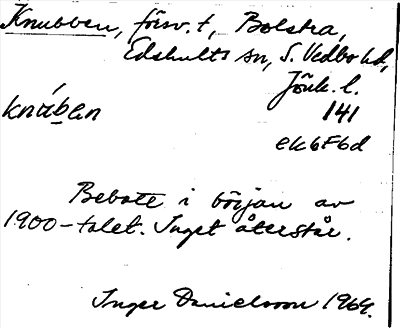 Knubben, försv. t, Bolstra,
Edshults sn, S. Vedbo hd,
Jönk. l.
knúben 141
ek6F6d
Bebott i början av
1900-talet. Inget återstår.
Inger Danielsson 1969.